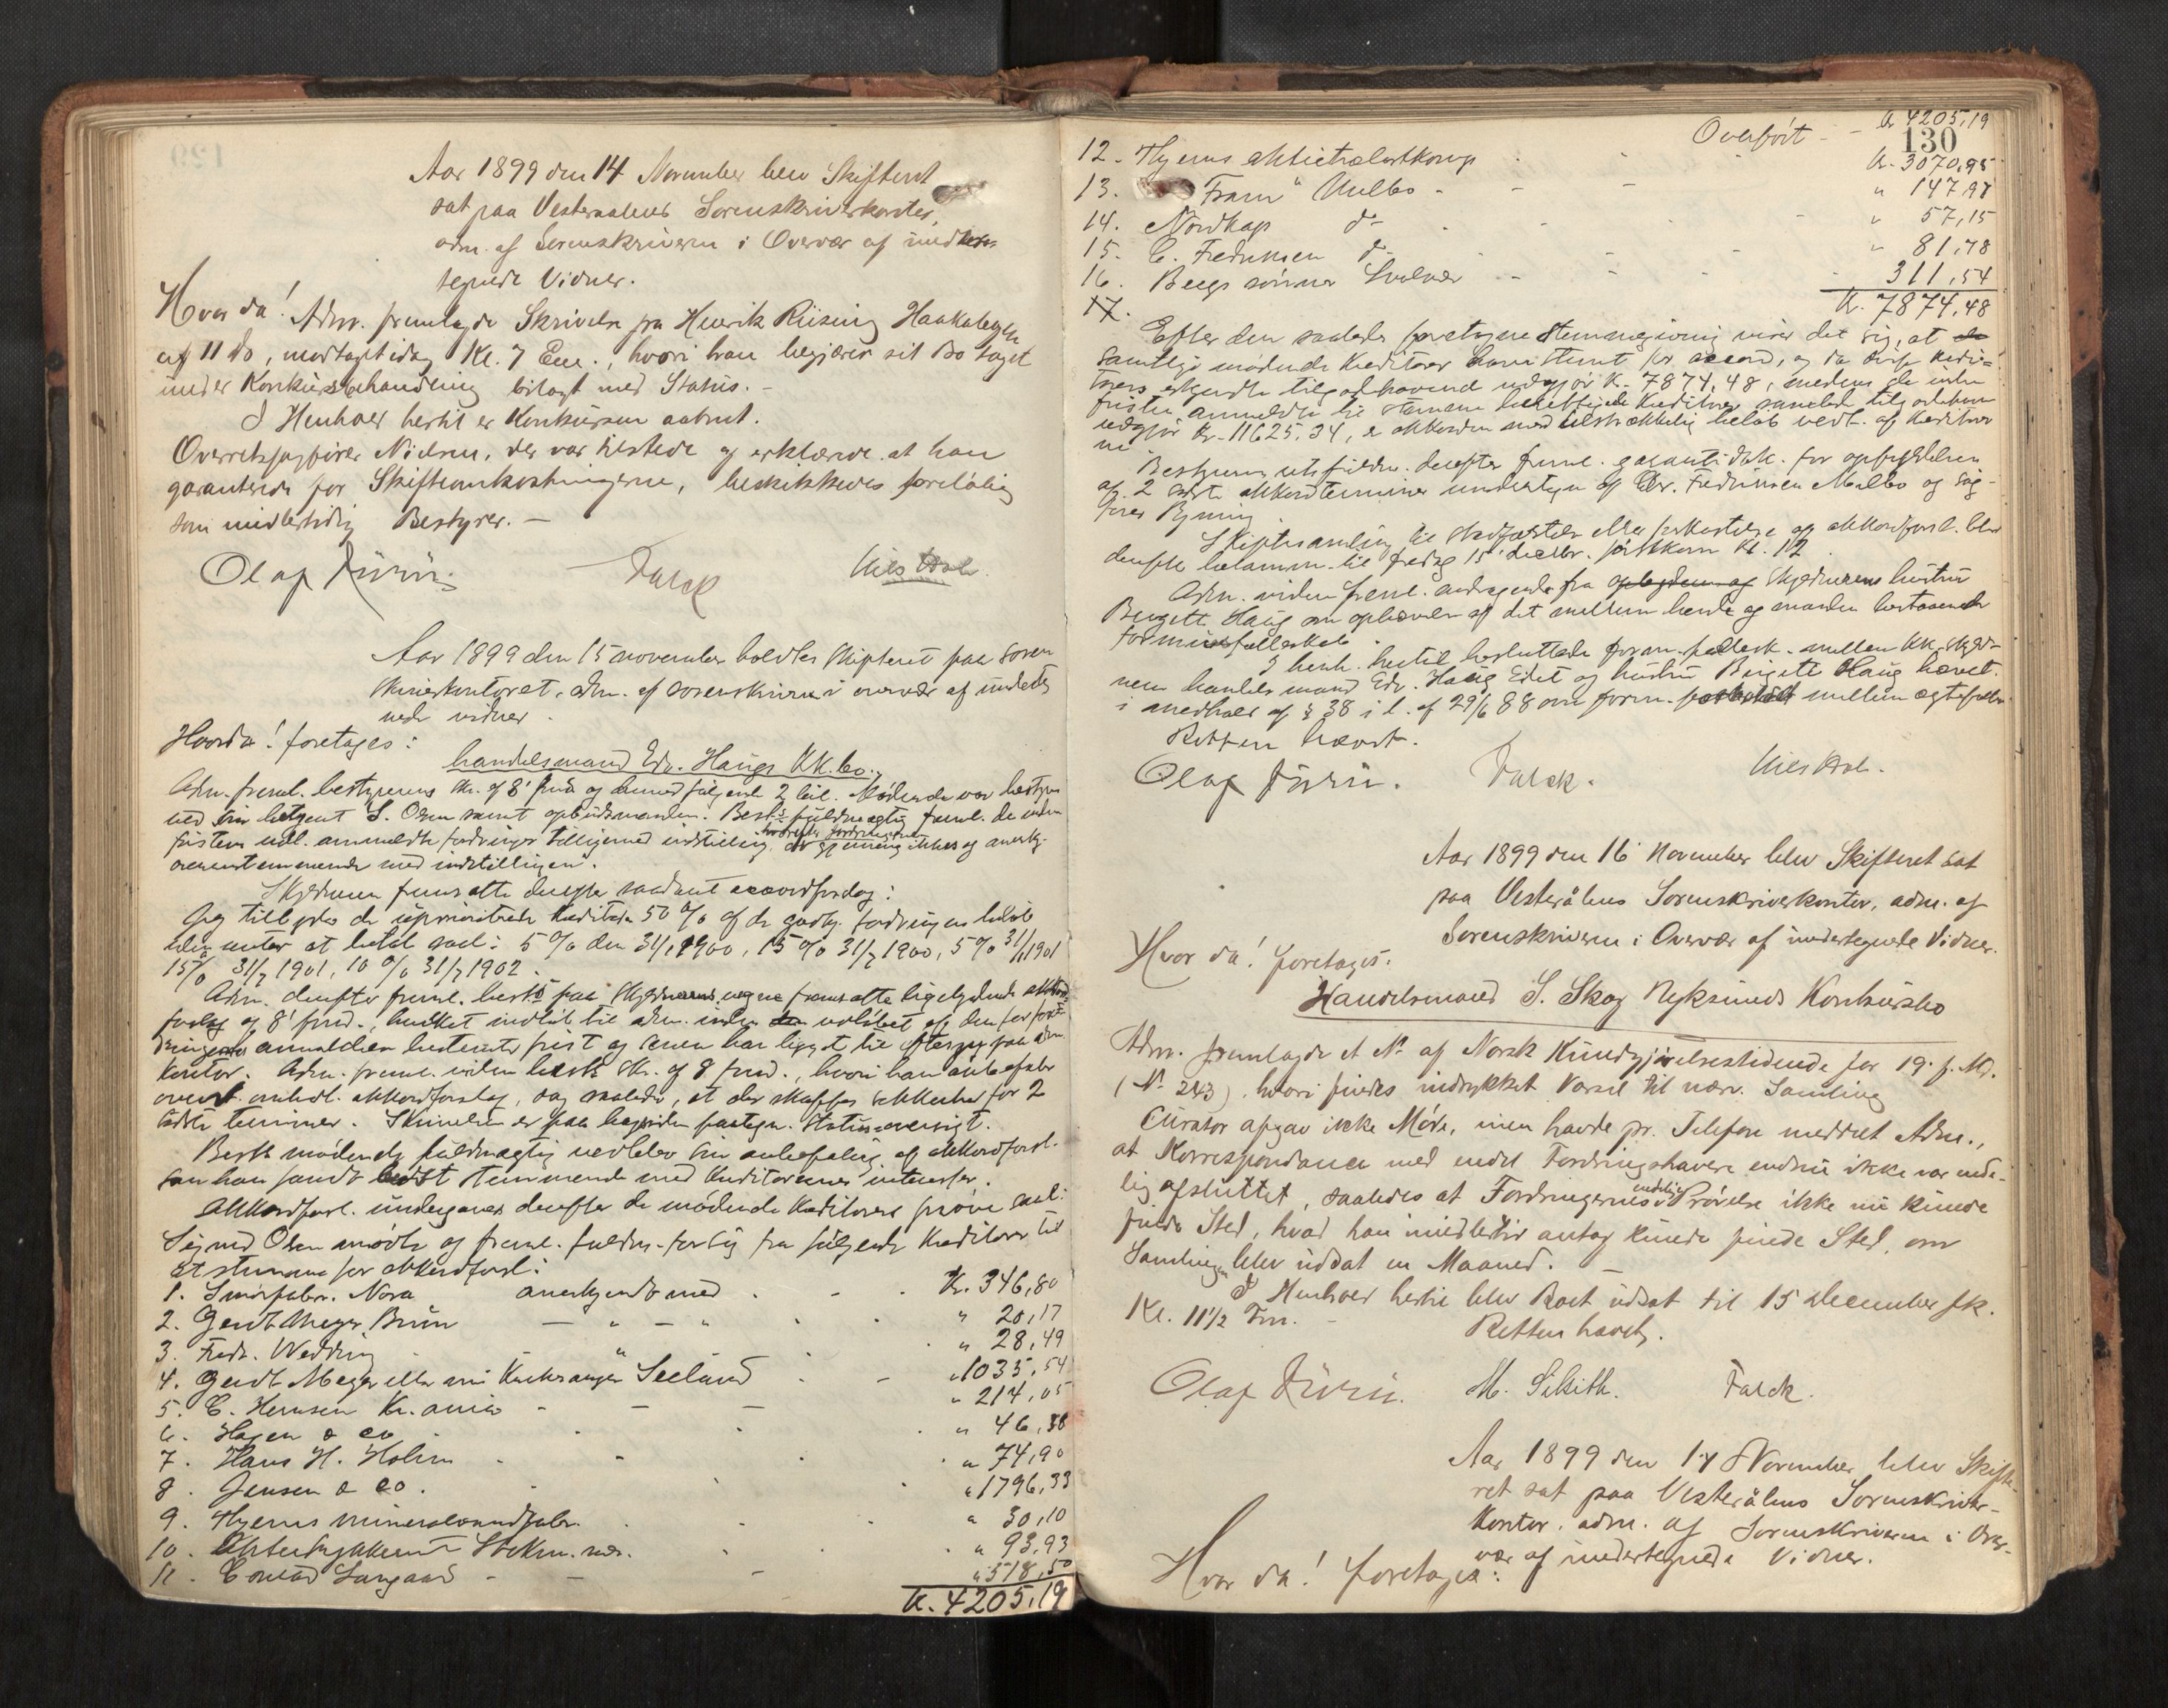 Aar 1899 den 14 November blev Skifteret
sat paa Vesteraalens Sorenskriverkontor,
adm. af Sorenskriveren i Overvær af under-
tegnede Vidner.
Hvor da! Adm. fremlagde Skrivelse fra Henrik Riising Haakabergen
af 11 ds, modtaget idag Kl. 7 Em., hvori han begjærer sit Bo taget
under Konkursbehandling bilagt med Status. -
I Henhold hertil er Konkursen aabnet.
Overretssagfører Nielsen, der var tilstede og erklærede at han
garanterede for Skifteomkostningerne, beskikkedes foreløbig
som midlertidig Bestyrer. -
Olaf Falck Nils
Aar 1899 den 15 november holdtes skifteret paa soren
skriverkontoret, adm. af sorenskriveren i overvær af underteg
nede vidner.
Hvorda! foretages:
handelsmand Edv. Haugs KK. bo.
Adm. freml. bestyrerens skr. af 8' and dermed følgende 2 bil. Mødende var bestyre
ved sin betjent S. Olsen samt opbudsmanden. Best's fuldmægtig freml. de inden
fristen anmeldte fordringer tilligemed indstilling, hvorefter fordringerne og anerkj.
overensstemmende med indstillingen.
Skyldneren fremsatte derefter saadant accordforslag:
Jeg tilbyder de uprioriterede kreditorer 50 % af de godkj. fordringers beløb
uden renter at betale saal: 5 % den 31/1 1900, 15 % 31/7 1900, 5 % 31/1 1901
15 % 31/7 1901, 10 % 31/7 1902.
Adm. derefter freml. best's paa skyldnerens vegne fremsatte ligelydende akkord
forslag af 8' , hvilket indløb til adm. inden udløbet af den for ford-
ringernes anmeldelse bestemte frist og senere har ligget til eftersyn paa adm
kontor. Adm. freml. videre best's skr. af 8 , hvori han anbefaler
ovent. omhdl. akkordforslag, dog saaledes, at der skaffes sikkerhed for 2
sidste terminer. Skrivelsen er paa bagsiden paategn. Statusoversigt.
Best's mødende fuldmægtig vedblev sin anbefaling af akkordforsl.
som han fandt bedst stemmende med kreditorernes interesser.
Akkordforsl. undergaves derefter de mødende kreditorers prøve saal:
Sigurd Olsen mødte og freml. fuldm. for sig fra følgende kreditorer til
at stemme for akkordforsl:
1. Smørfabr. Nora anerkjendt med Kr. 346,80
2. Gerdt Meyer Bruun — " — " " 20,17
3. Fredr. Wedding " 28,49
4. Gerdt Meyer eller Seeland " 1035,54
5. C. Hermsen Kr.ania - — — " 214,05
6. Hagen & co " 46,38
7. Hans H. Holm - - " 74,90
8. Jensen & co. " 1796,33
9. Hjerns mineralvandfabr. " 30,10
10. " 93,93
11. Conrad Langaard - — - " 518,50
Kr. 4205,19
130
Overført - - Kr 4205,19
12. Hjerns Kr. 3070,95
13. "Fram" Melbo - - - - " 147,97
14. Nordkap do " 57,15
15. C. Fredriksen do " 81,78
16. Bergs sønner Svolvær - - - 311,54
17. Kr. 7874,48
Efter den saaledes foretagne stemmegivning viser det sig, at
samtlige mødende kreditorer havde stemt for accord, og da disse kredi-
torers erkjendte tilgodehavende udgjør Kr. 7874,48, medens de inden
fristen anmeldte til stemme berettigede kreditorers samlede tilgodehav
udgjør Kr. 11625.34, er akkorden med tilstrækkelig beløb vedt. af kreditorer
ne.
Bestyrerens fuldm. derefter freml. garantidok. for opfyldelsen
af 2 sidste akkordterminer undertegn. af Fredriksen Melbo og sag-
fører Rynning.
Skiftesamling til stadfæstelse eller forkastelse af akkordforsl. blev
derefter berammet til fredag 15' decbr. førstkom Kl. 12
Adm. videre freml. andragende fra skyldnerens hustru
Bergitte Haug om ophævelse af det mellem hende og manden bestaaende
formuesfælleskab.
I henh. hertil besluttedes form. fællesk. mellem KK skyld-
neren handelsmand Edv. Haug Eidet og hustru Birgitte Haug hævet.
i medhold af § 38 i l. af 29/6 88 om form. forholdet mellem ægtefæller
Retten hævet.
Olaf Falck. Nils
Aar 1899 den 16 November blev Skifteret sat
paa Vesterålens Sorenskriverkontor, adm. af
Sorenskriveren i Overvær af undertegnede Vidner.
Hvor da! foretages:
Handelsmand S. Skog Nyksunds Konkursbo
Adm. fremlagde et No. af Norsk Kundgjørelsestidende for 19. f. Md.
(No. 243). hvori findes indrykket Varsel til nærv. Samling
Curator afgav ikke Møde, men havde pr. Telefon meddelt Adm.,
at Korrespondancen med endel Fordringshavere endnu ikke var ende-
lig afsluttet, saaledes at Fordringernes endelige Prøvelse ikke nu kunde
finde Sted, hvad han imidlertid antog kunde finde Sted, om
Samlingen blev udsat en Maaned. —
I Henhold hertil blev Boet udsat til 15 December fk.
Kl. 11 1/2 Fm. - Retten hævet.
Olaf M. Falck.
Aar 1899 den 17 November blev Skifte-
ret sat paa Vesterålens Sorenskriver-
kontor. adm. af Sorenskriveren i Over-
vær af undertegnede Vidner.
Hvor da! foretages: